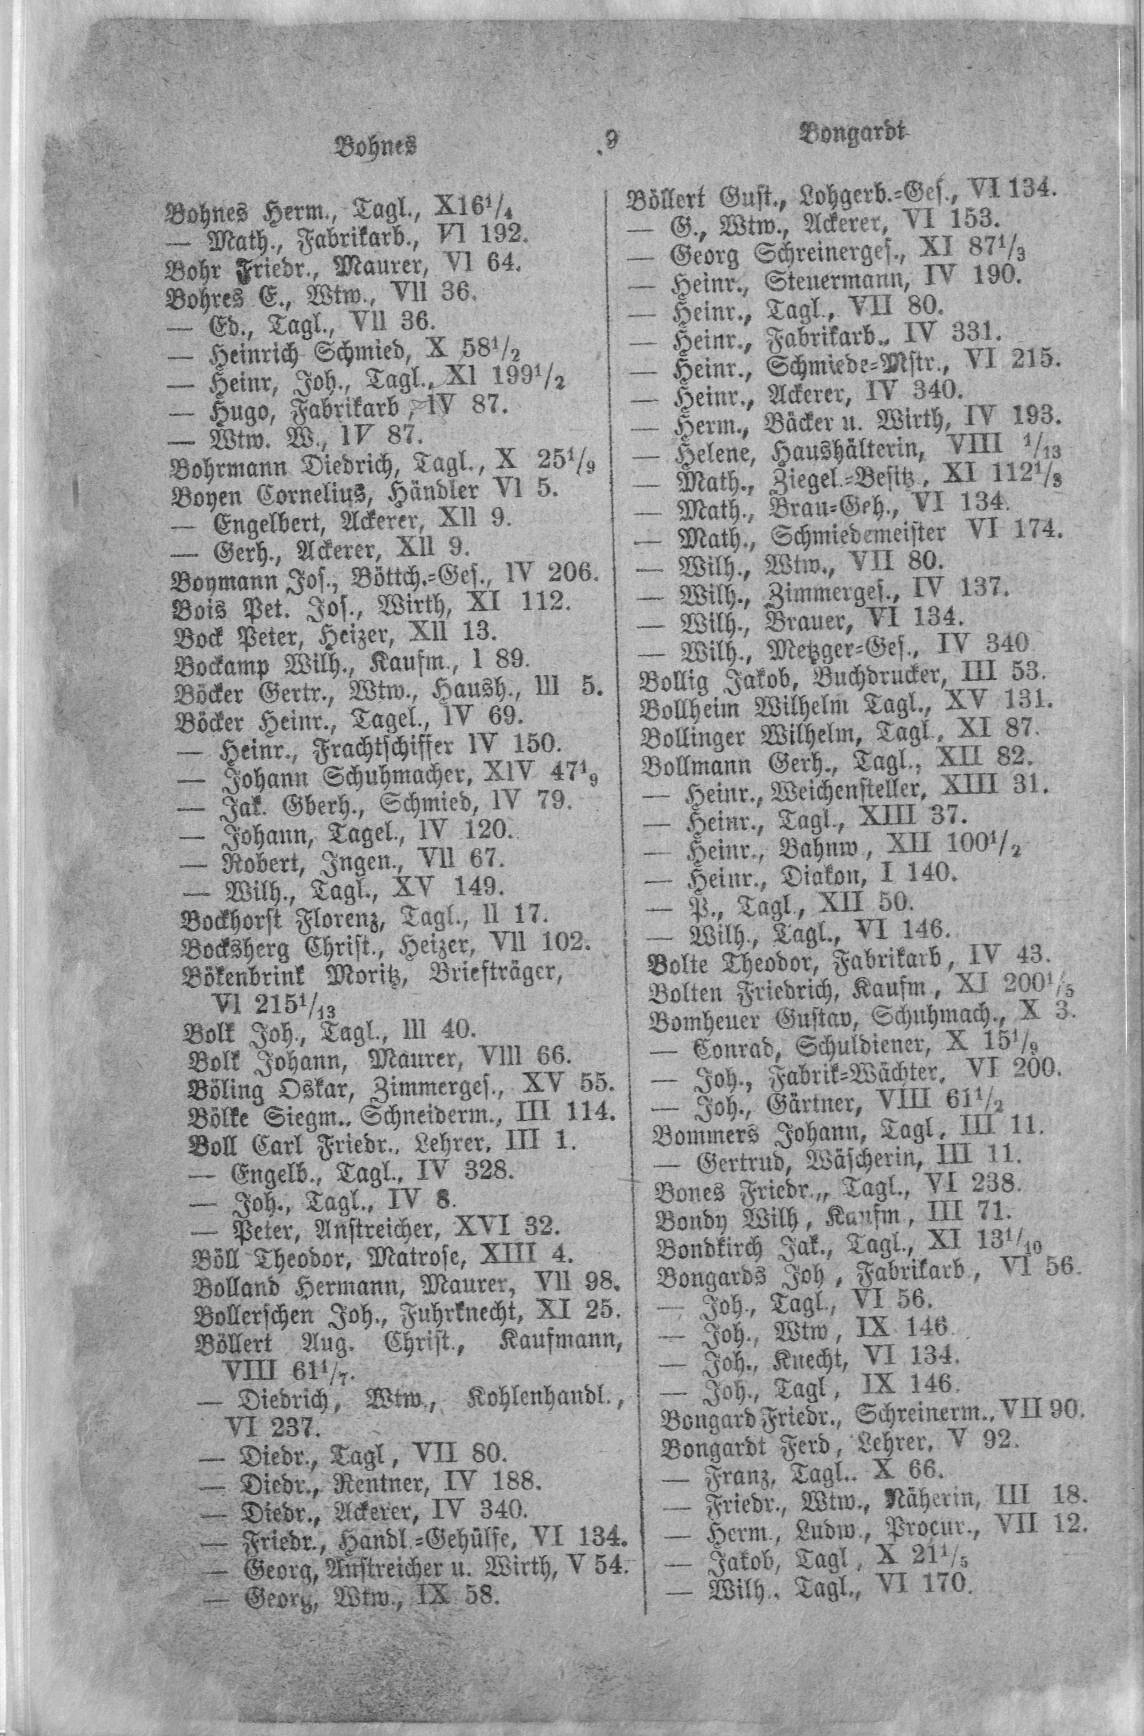 Bohnes
9
Bongardt
Bohnes Herm., Tagl., X16¹/₄
— Math., Fabrikarb., VI 192.
Bohr Friedr., Maurer, VI 64.
Bohres E., Wtw., VII 36.
— Ed., Tagl., VII 36.
— Heinrich Schmied, X 58¹/₂
— Heinr, Joh., Tagl., XI 199¹/₂
— Hugo, Fabrikarb, IV 87.
— Wtw. W., IV 87.
Bohrmann Diedrich, Tagl., X 25¹/₉
Boyen Cornelius, Händler VI 5.
— Engelbert, Ackerer, XII 9.
— Gerh., Ackerer, XII 9.
Boymann Jos., Böttch.=Ges., IV 206.
Bois Pet. Jos., Wirth, XI 112.
Bock Peter, Heizer, XII 13.
Bockamp Wilh., Kaufm., I 89.
Böcker Gertr., Wtw., Haush., III 5.
Böcker Heinr., Tagel., IV 69.
— Heinr., Frachtschiffer IV 150.
— Johann Schuhmacher, XIV 47¹₉
— Jak. Gberh., Schmied, IV 79.
— Johann, Tagel., IV 120.
— Robert, Ingen., VII 67.
— Wilh., Tagl., XV 149.
Bockhorst Florenz, Tagl., II 17.
Bocksherg Christ., Heizer, VII 102.
Bökenbrink Moritz, Briefträger,
VI 215¹/₁₃
Bolk Joh., Tagl., III 40.
Bolk Johann, Maurer, VIII 66.
Böling Oskar, Zimmerges., XV 55.
Bölke Siegm., Schneiderm., III 114.
Boll Carl Friedr., Lehrer, III 1.
— Engelb., Tagl., IV 328.
— Joh., Tagl., IV 8.
— Peter, Anstreicher, XVI 32.
Böll Theodor, Matrose, XIII 4.
Bolland Hermann, Maurer, VII 98.
Bollerschen Joh., Fuhrknecht, XI 25.
Böllert Aug. Christ., Kaufmann,
VIII 61¹/₇.
— Diedrich, Wtw., Kohlenhandl.,
VI 237.
— Diedr., Tagl, VII 80.
— Diedr., Rentner, IV 188.
— Diedr., Ackerer, IV 340.
— Friedr., Handl.=Gehülfe, VI 134.
— Georg, Anstreicher u. Wirth, V 54.
— Georg, Wtw., IX 58.
Böllert Gust., Lohgerb.=Ges., VI 134.
— G., Wtw., Ackerer, VI 153.
— Georg Schreinerges., XI 87¹/₃
— Heinr., Steuermann, IV 190.
— Heinr., Tagl., VII 80.
— Heinr., Fabrikarb., IV 331.
— Heinr., Schmiede=Mstr., VI 215.
— Heinr., Ackerer, IV 340.
— Herm., Bäcker u. Wirth, IV 193.
— Helene, Haushälterin, VIII ¹/₁₃
— Math., Ziegel.=Besitz, XI 112¹/₃
— Math., Brau=Geh., VI 134.
— Math., Schmiedemeister VI 174.
— Wilh., Wtw., VII 80.
— Wilh., Zimmerges., IV 137.
— Wilh., Brauer, VI 134.
— Wilh., Metzger=Ges., IV 340
Bollig Jakob, Buchdrucker, III 53.
Bollheim Wilhelm Tagl., XV 131.
Bollinger Wilhelm, Tagl., XI 87.
Bollmann Gerh., Tagl., XII 82.
— Heinr., Weichensteller, XIII 31.
— Heinr., Tagl., XIII 37.
— Heinr., Bahnw, XII 100¹/₂
— Heinr., Diakon, I 140.
— P., Tagl., XII 50.
— Wilh., Tagl., VI 146.
Bolte Theodor, Fabrikarb, IV 43.
Bolten Friedrich, Kaufm, XI 200¹/₅
Bomheuer Gustav, Schuhmach., X 3.
— Conrad, Schuldiener, X 15¹/₉
— Joh., Fabrik=Wächter, VI 200.
— Joh., Gärtner, VIII 61¹/₂
Bommers Johann, Tagl, III 11.
— Gertrud, Wäscherin, III 11.
Bones Friedr.,, Tagl., VI 238.
Bondy Wilh, Kaufm, III 71.
Bondkirch Jak., Tagl., XI 13¹/₁₀
Bongards Joh, Fabrikarb, VI 56.
— Joh., Tagl., VI 56.
— Joh., Wtw, IX 146
— Joh., Knecht, VI 134.
— Joh., Tagl, IX 146.
Bongard Friedr., Schreinerm., VII 90.
Bongardt Ferd, Lehrer, V 92.
— Franz, Tagl.. X 66.
— Friedr., Wtw., Näherin, III 18.
— Herm., Ludw., Procur., VII 12.
— Jakob, Tagl, X 21¹/₅
— Wilh., Tagl., VI 170.